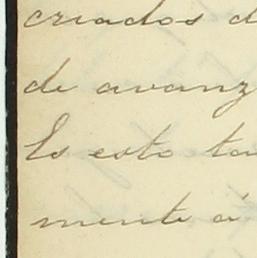 criados d
de avanz
Es esto ta
mente á